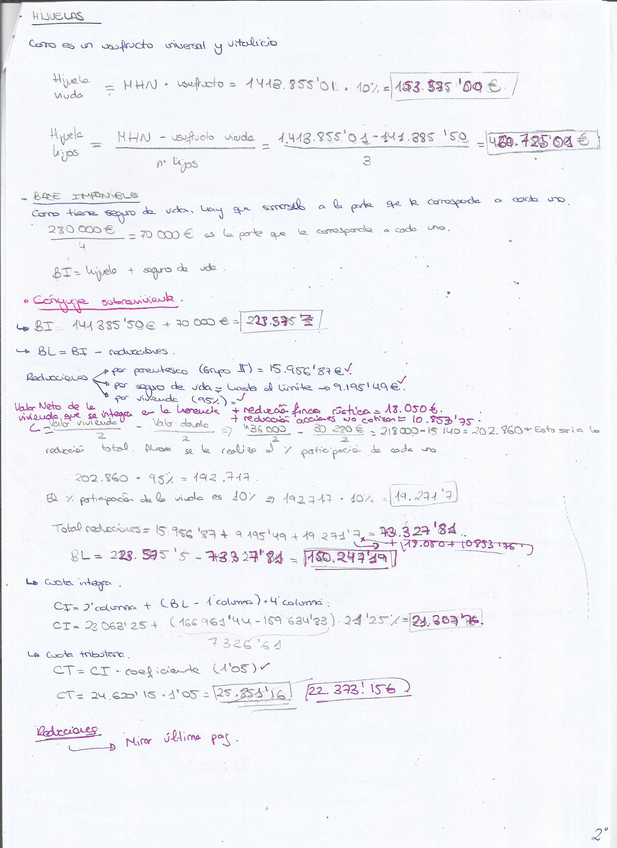 · HIJUELAS
Como es un usufructo universal y vitalicio
Hijuela viuda = MHN · usufructo = 1413.855'01 · 10% = 153.575'00 €
Hijuela hijos = MHN - usufructo viuda / nº hijos = 1.413.855'01 - 141.385'50 / 3 = 430.725'01 €
- BASE IMPONIBLE
Como tiene seguro de vida, hay que a la parte que le corresponda a cada uno.
280 000 € / 4 = 70 000 € es la parte que le corresponde a cada uno.
BI = hijuela + seguro de vida.
• Cónyuge sobreviviente.
↳ BI = 141 385'50 € + 70 000 € = 223.575'
↳ BL = BI - reducciones.
Reducciones
por parentesco (Grupo II) = 15.956'87 € ✓
por seguro de vida = hasta el límite → 9.195'49 € ✓
por vivienda (95%) = ✓
Valor Neto de la
vivienda que se integra en la herencia + reducción finca rústica = 18.050 €.
+ reducción acciones no cotizan = 10.853'75.
Valor vivienda / 2 - Valor deuda / 2 ⇒ 436000 / 2 - 30 280 € / 2 = 218000 - 15 140 = 202.860 → Esto sería la
reducción total. Ahora se le realiza el % participación de cada uno
202.860 · 95% = 192.717.
El % participación de la viuda es 10% ⇒ 192717 · 10% = 19.271'7
Total reducciones = 15 956'87 + 9 195'49 + 19.271'7 = 73.327'81
+ (18.050 + 10853'75)
BL = 223.575'5 - 73327'81 = 150.247'19
↳ Cuota íntegra.
CI = 2ª columna + (BL - 1ª columna) · 4ª columna.
CI = 23 063'25 + (166 961'44 - 159 634'83) · 21'25% = 21.307'76.
7326'61
↳ Cuota tributaria.
CT = CI · coeficiente (1'05) ✓
CT = 24.620'15 · 1'05 = 25.851'16 22.373'156
Reducciones
→ Mirar última pag.
2º